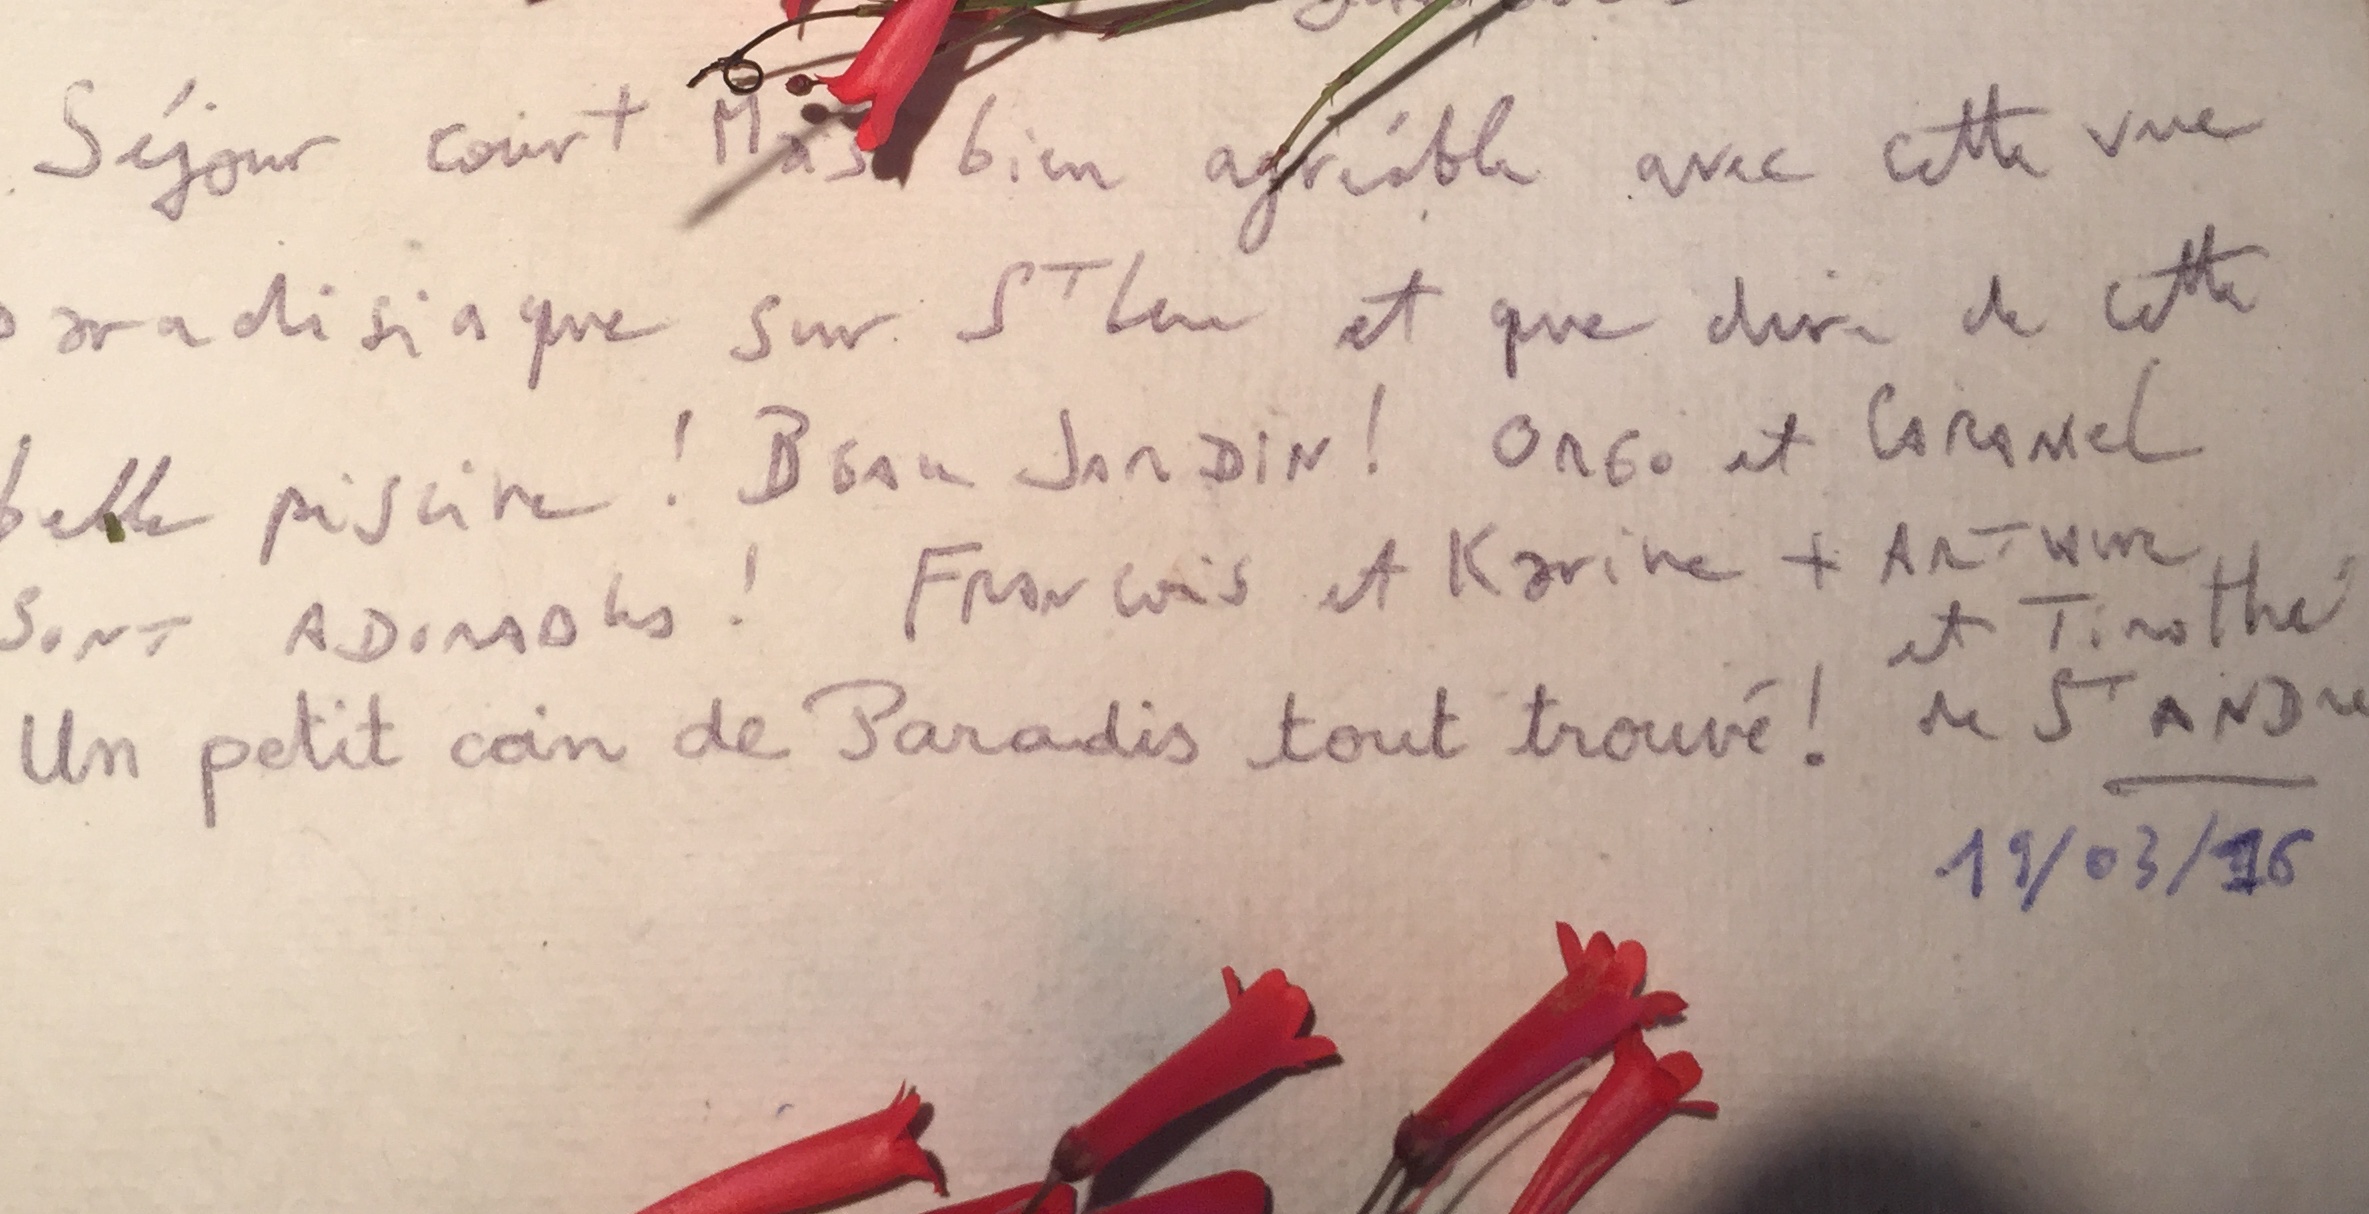 Séjour court Mais bien agréable avec cette vue
paradisiaque sur St Leu et que dire de cette
belle piscine ! BEAU JARDIN ! OREO et CARAMEL
SONT ADORABLES ! FRANÇOIS et Karine + ARTHUR
et Timothé
Un petit coin de Paradis tout trouvé ! de ST ANDRE
19/03/16